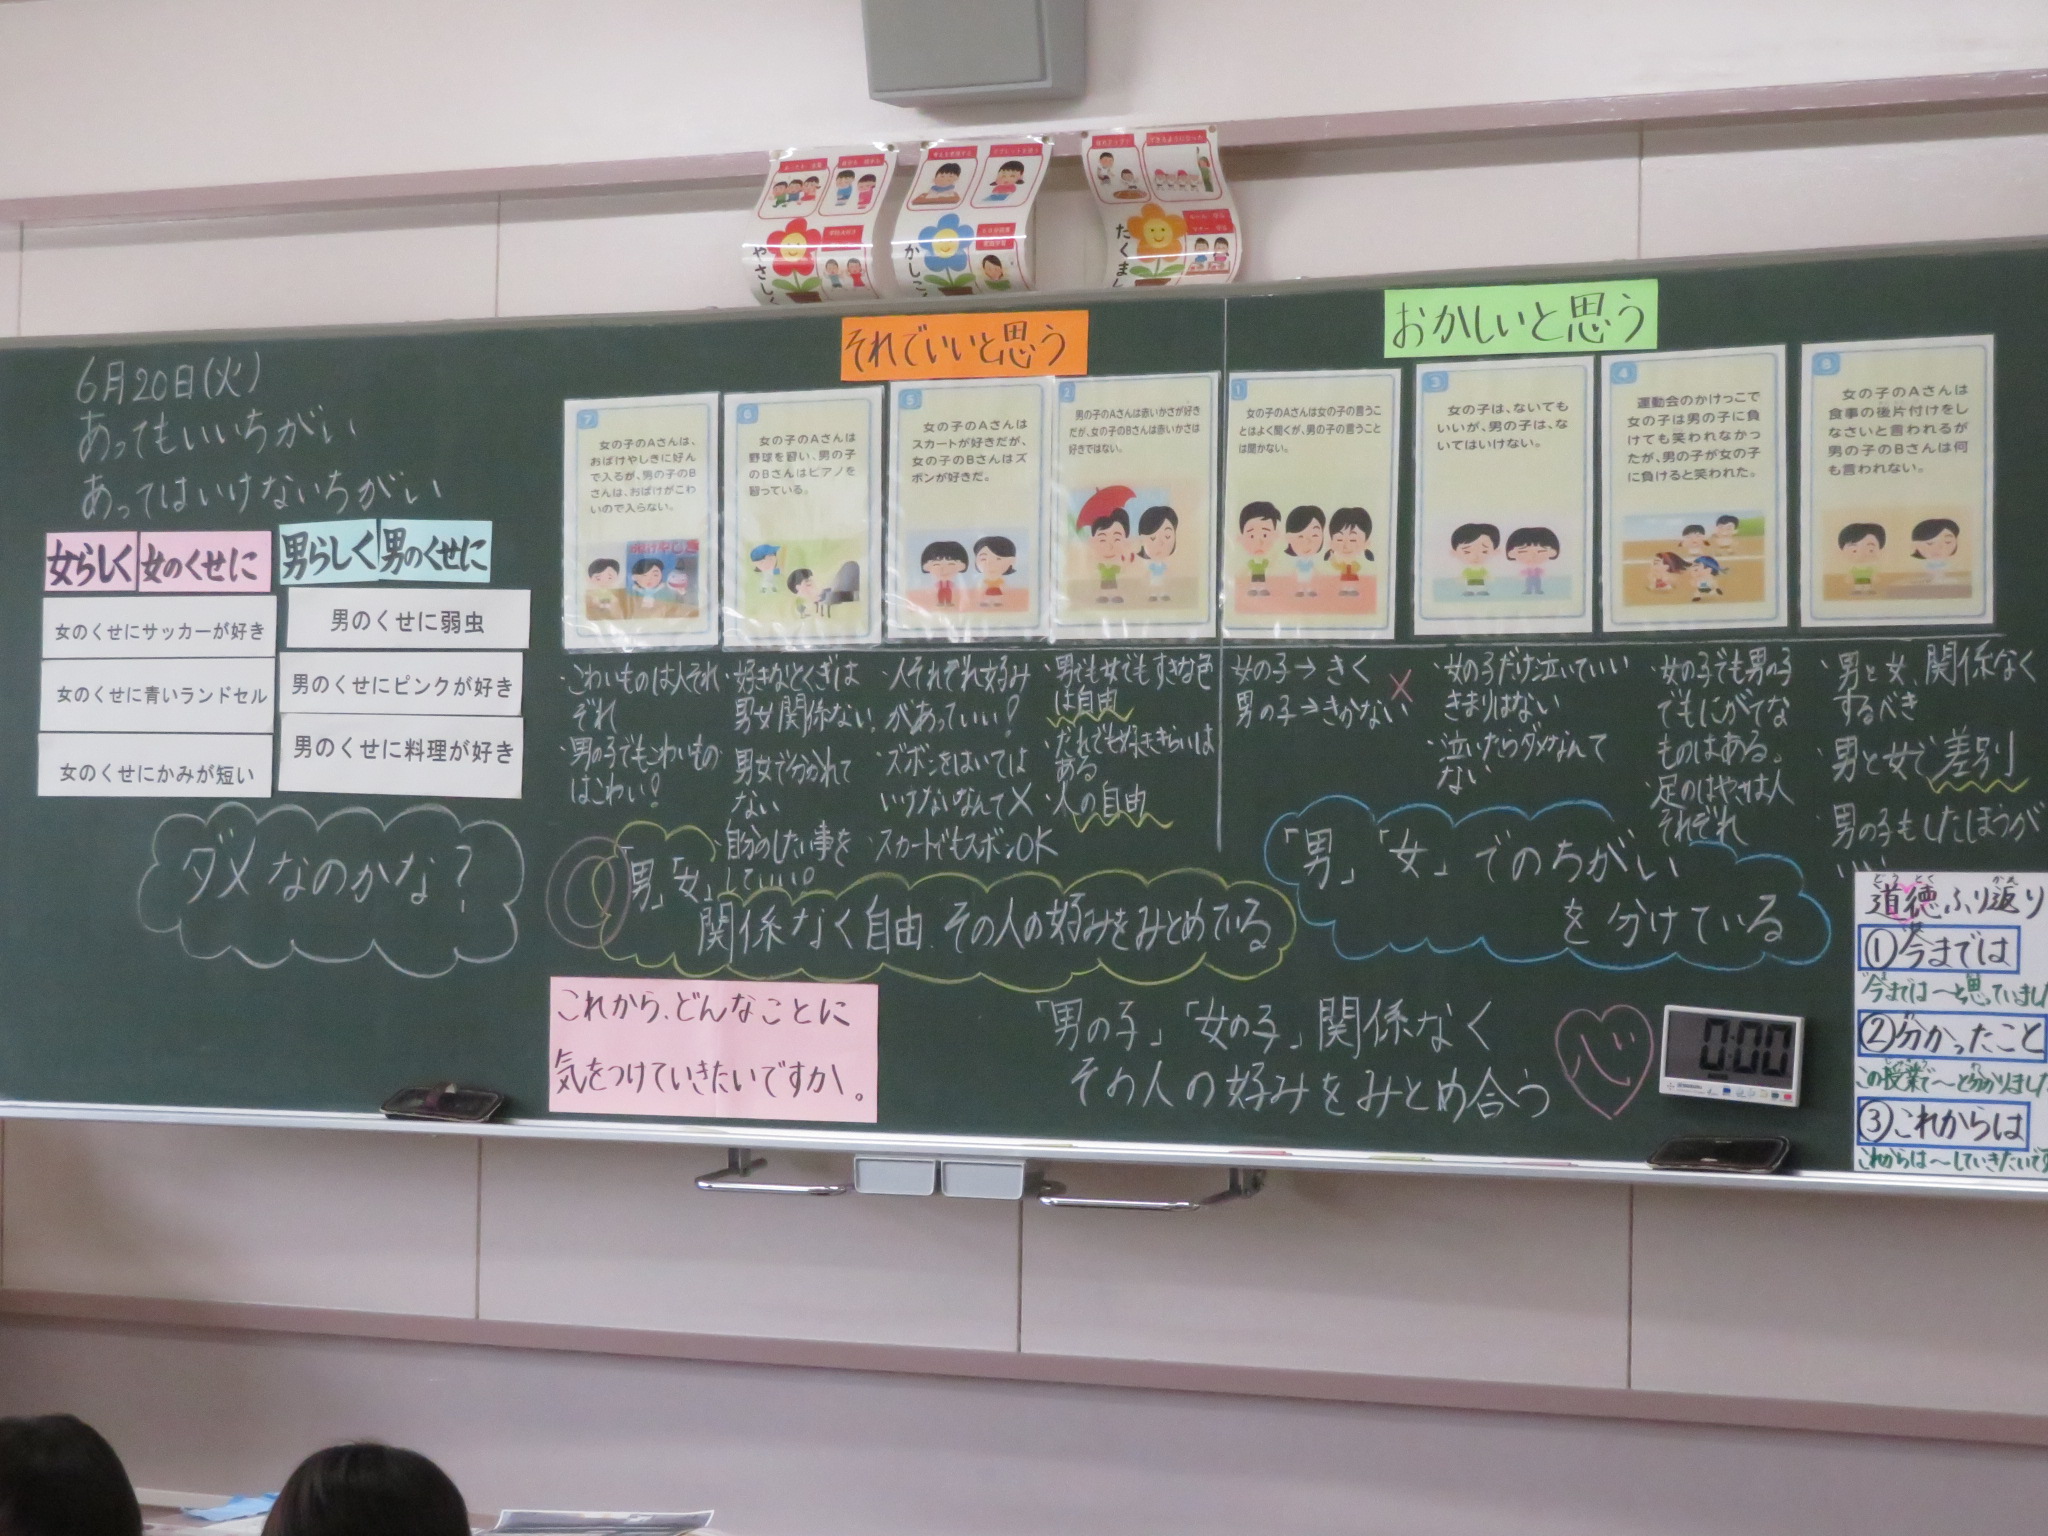 やさしく
かしこく
たくまし
6月20日(火)
あってもいいちがい
あってはいけないちがい
女らしく
女のくせに
男らしく
男のくせに
女のくせにサッカーが好き
女のくせに青いランドセル
女のくせにかみが短い
男のくせに弱虫
男のくせにピンクが好き
男のくせに料理が好き
ダメなのかな?
それでいいと思う
7
女の子のAさんは、
おばけやしきに好ん
で入るが、男の子のB
さんは、おばけがこわ
いので入らない。
おばけやしき
・こわいものは人それ
ぞれ
・男の子でもこわいもの
はこわい!
6
女の子のAさんは
野球を習い、男の子
のBさんはピアノを
習っている。
・好きなとくぎは
男女関係ない。
男女で分かれて
ない
自分のしたい事を
していい。
5
女の子のAさんは
スカートが好きだが、
女の子のBさんはズ
ボンが好きだ。
・人それぞれ好み
があっていい!
・ズボンをはいては
いけないなんて×
・スカートでもズボンOK
2
男の子のAさんは赤いかさが好き
だが、女の子のBさんは赤いかさは
好きではない。
・男でも女でもすきな色
は自由
・だれでも好ききらいは
ある
・人の自由
おかしいと思う
1
女の子のAさんは女の子の言うこ
とはよく聞くが、男の子の言うこと
は聞かない。
女の子→きく
男の子→きかない
×
3
女の子は、ないても
いいが、男の子は、な
いてはいけない。
・女の子だけ泣いていい
きまりはない
・泣いたらダメなんて
ない
4
運動会のかけっこで
女の子は男の子に負
けても笑われなかっ
たが、男の子が女の子
に負けると笑われた。
・女の子でも男の子
でもにがてな
ものはある。
・足のはやさは人
それぞれ
8
女の子のAさんは
食事の後片付けをし
なさいと言われるが
男の子のBさんは何
も言われない。
・男と女、関係なく
するべき
・男と女で差別
・男の子もしたほうが
いい
「男」「女」
関係なく自由、その人の好みをみとめている
「男」「女」でのちがい
を分けている
これから、どんなことに
気をつけていきたいですか。
「男の子」「女の子」関係なく
その人の好みをみとめ合う
心
0:00
道徳ふり返り
①今までは
今までは〜と思っていまし
②分かったこと
この授業で〜と分かりました
③これからは
これからは〜していきたいです